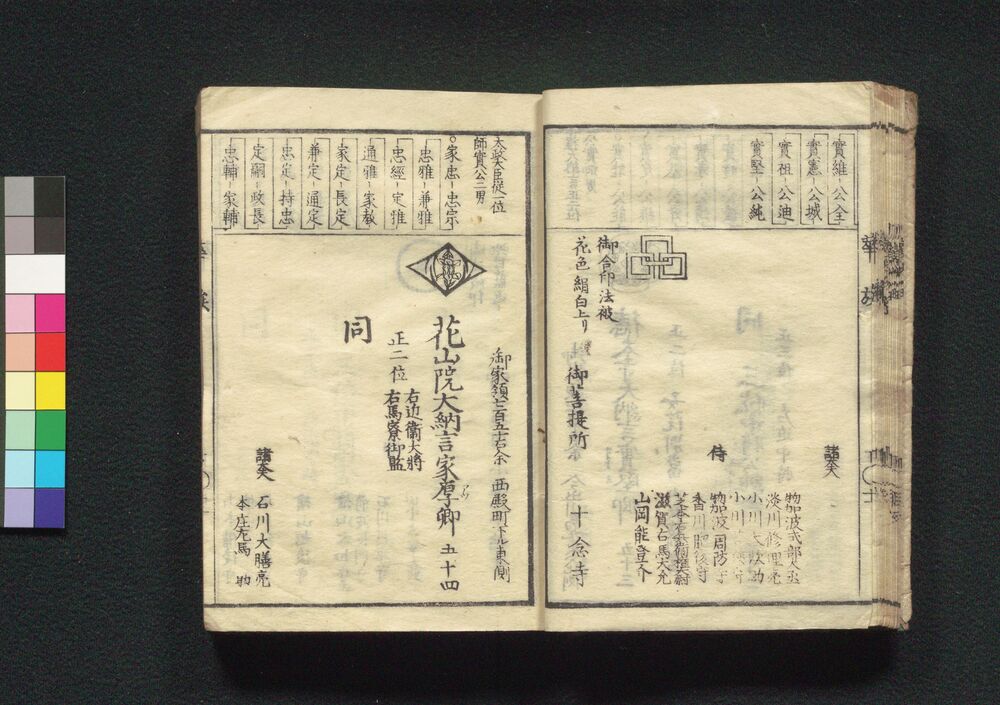 實維 公全
實憲 公城
實祖 公廸
實堅 公純
諸大夫
物加波式部大丞
淡川修理亮
侍
香川肥後守
滋賀右馬大允
山岡能登介
御合印法被
花色絹白上り
御菩提所
十念寺
太政大臣從一位
師實公二男
家忠 忠宗
忠雅 兼雅
忠經 定雅
通雅 家教
家定 長定
兼定 通定
忠定 持忠
定嗣 政長
忠輔 家輔
御家領七百五十石余 西殿町下ル東側
花山院大納言家厚卿 五十四
正二位
右近衛大將
右馬寮御監
同
諸大夫
石川大膳亮
本庄左馬助